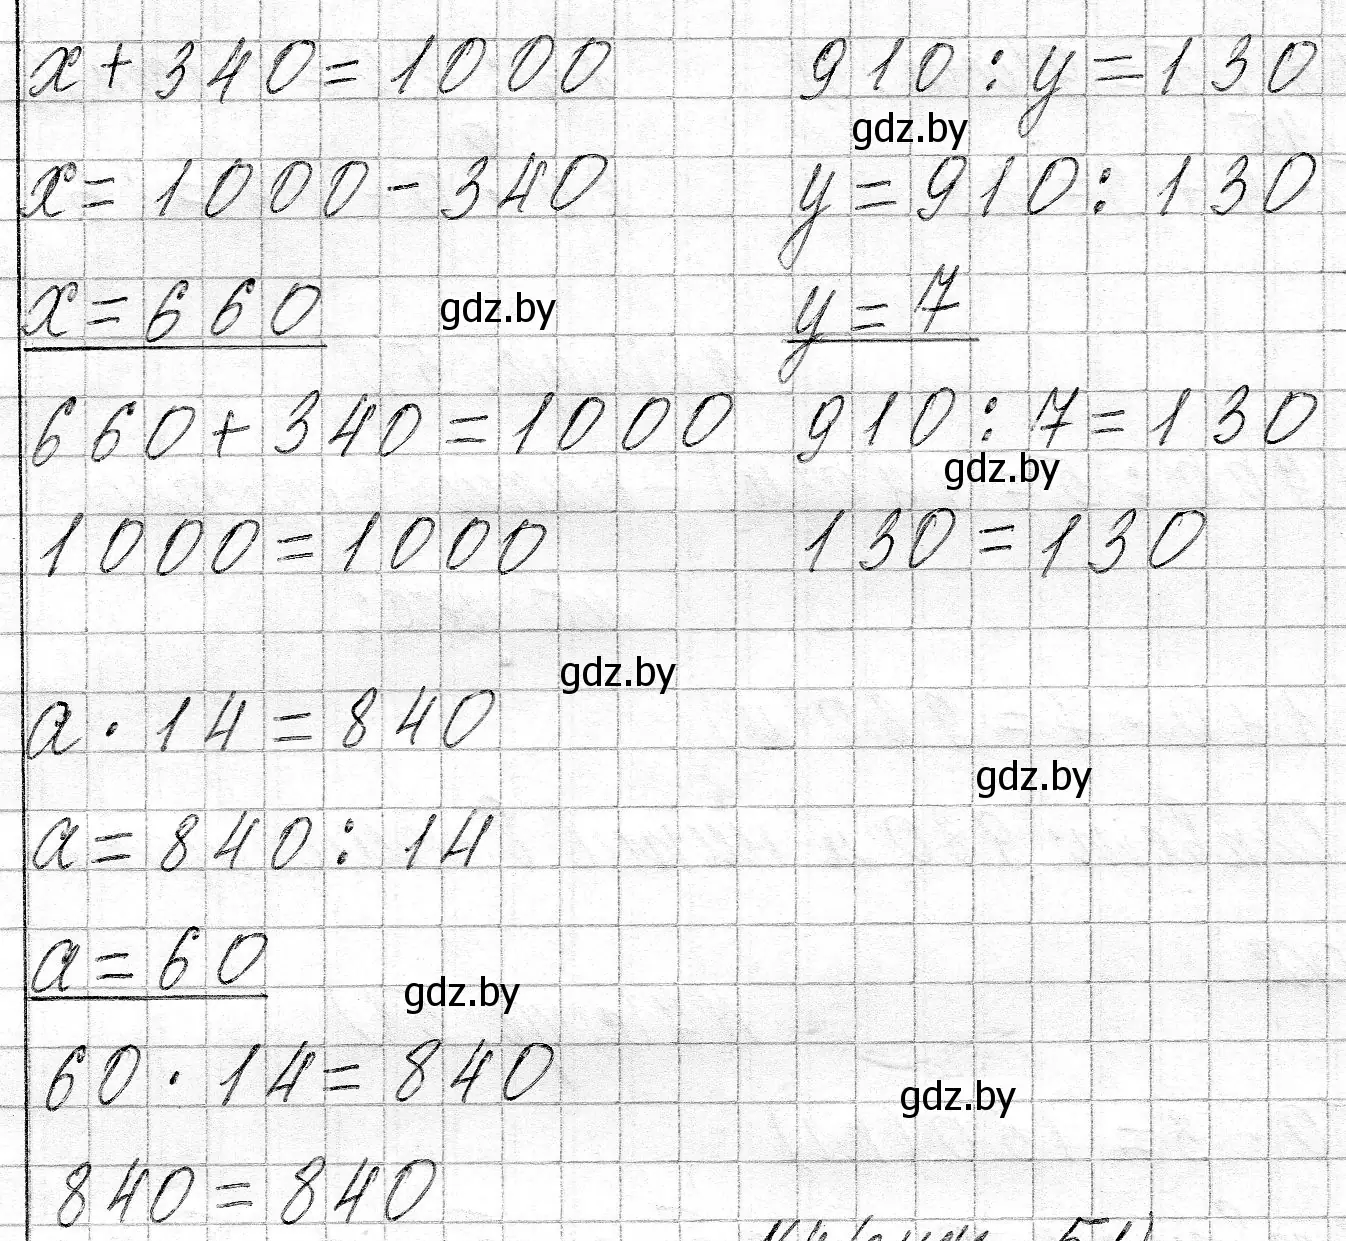 x + 340 = 1000
x = 1000 - 340
x = 660
660 + 340 = 1000
1000 = 1000
910 : y = 130
y = 910 : 130
y = 7
910 : 7 = 130
130 = 130
a · 14 = 840
a = 840 : 14
a = 60
60 · 14 = 840
840 = 840
gdz.by
gdz.by
gdz.by
gdz.by
gdz.by
gdz.by
gdz.by